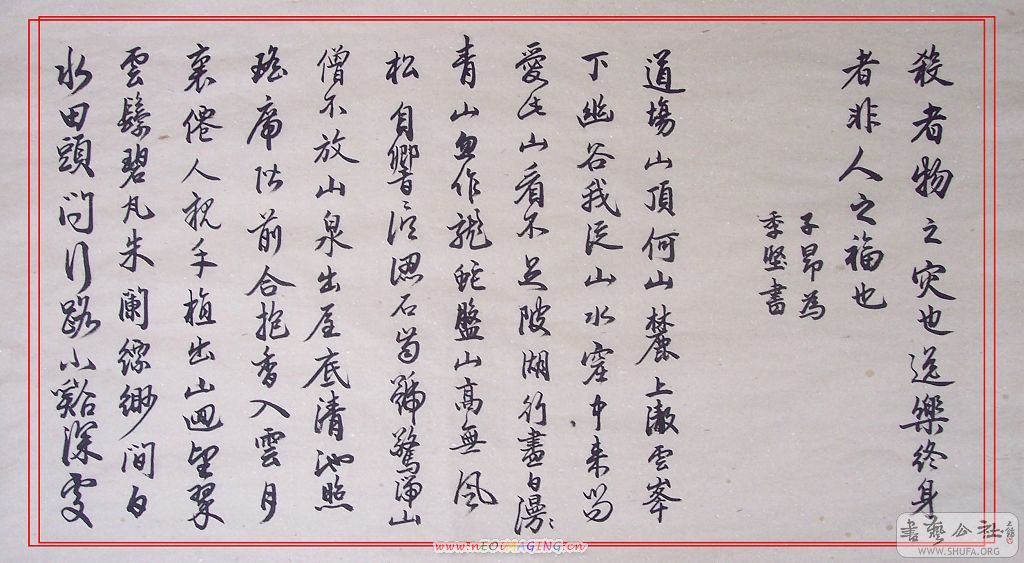 殺者物之灾也逸樂終身
者非人之福也
子昂為
季堅書
道場山頂何山麓上澈雲峯
下幽谷我從山水窟中来尚
愛此山看不足陂湖行盡白漫〻
青山忽作龍蛇盤山高無風
松自響誤認石齒號驚湍山
僧不放山泉出屋底清池照
瑤席阶前合抱香入雲月
裏僊人親手植出山迴望翠
雲鬟碧瓦朱闌縹緲間白
水田頭問行路小谿深處
書藝公社
WWW.SHUFA.ORG
www.nEOiMAGING.cn